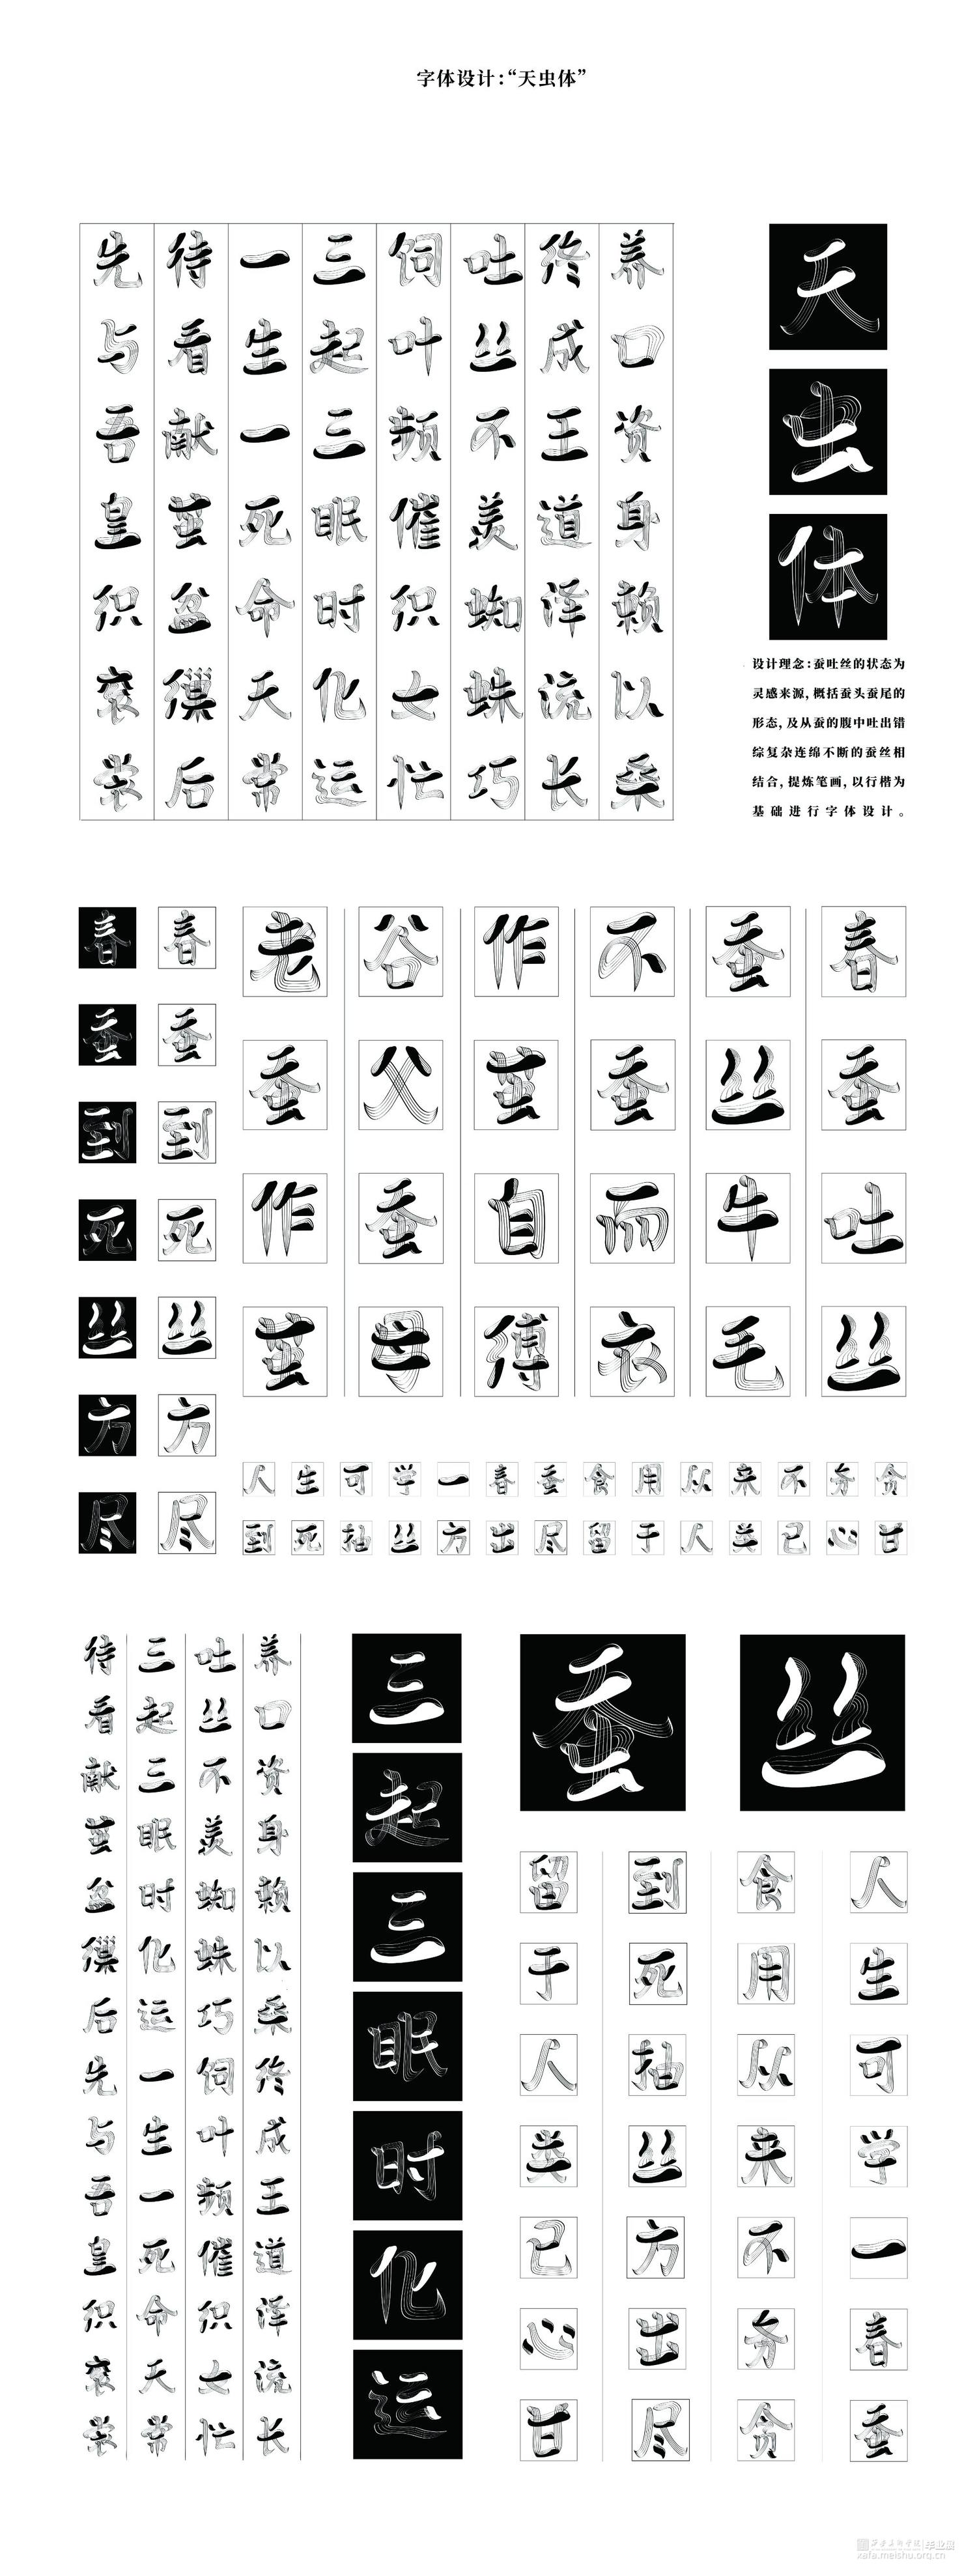 字体设计:“天虫体”
养口资身赖以桑
终成王道泽流长
吐丝不羡蜘蛛巧
饲叶频催织之忙
三起三眠时化运
一生一死命天常
待看献茧盆缫后
先与吾皇织衮裳
天虫体
设计理念:蚕吐丝的状态为
灵感来源,概括蚕头蚕尾的
形态,及从蚕的腹中吐出错
综复杂连绵不断的蚕丝相
结合,提炼笔画,以行楷为
基础进行字体设计。
春蚕到死丝方尽
春蚕到死丝方尽
春蚕吐丝
蚕丝牛毛
不蚕而衣
作茧自缚
谷父蚕母
老蚕作茧
人生可学一春蚕食用从来不务贪
到死抽丝方出尽留于人类已心甘
养口资身赖以桑终成王道泽流长
吐丝不羡蜘蛛巧饲叶频催织之忙
三起三眠时化运一生一死命天常
待看献茧盆缫后先与吾皇织衮裳
三起三眠时化运
蚕丝
人生可学一春蚕
食用从来不务贪
到死抽丝方出尽
留于人类已心甘
西安美术学院|毕业展
xafa.meishu.org.cn